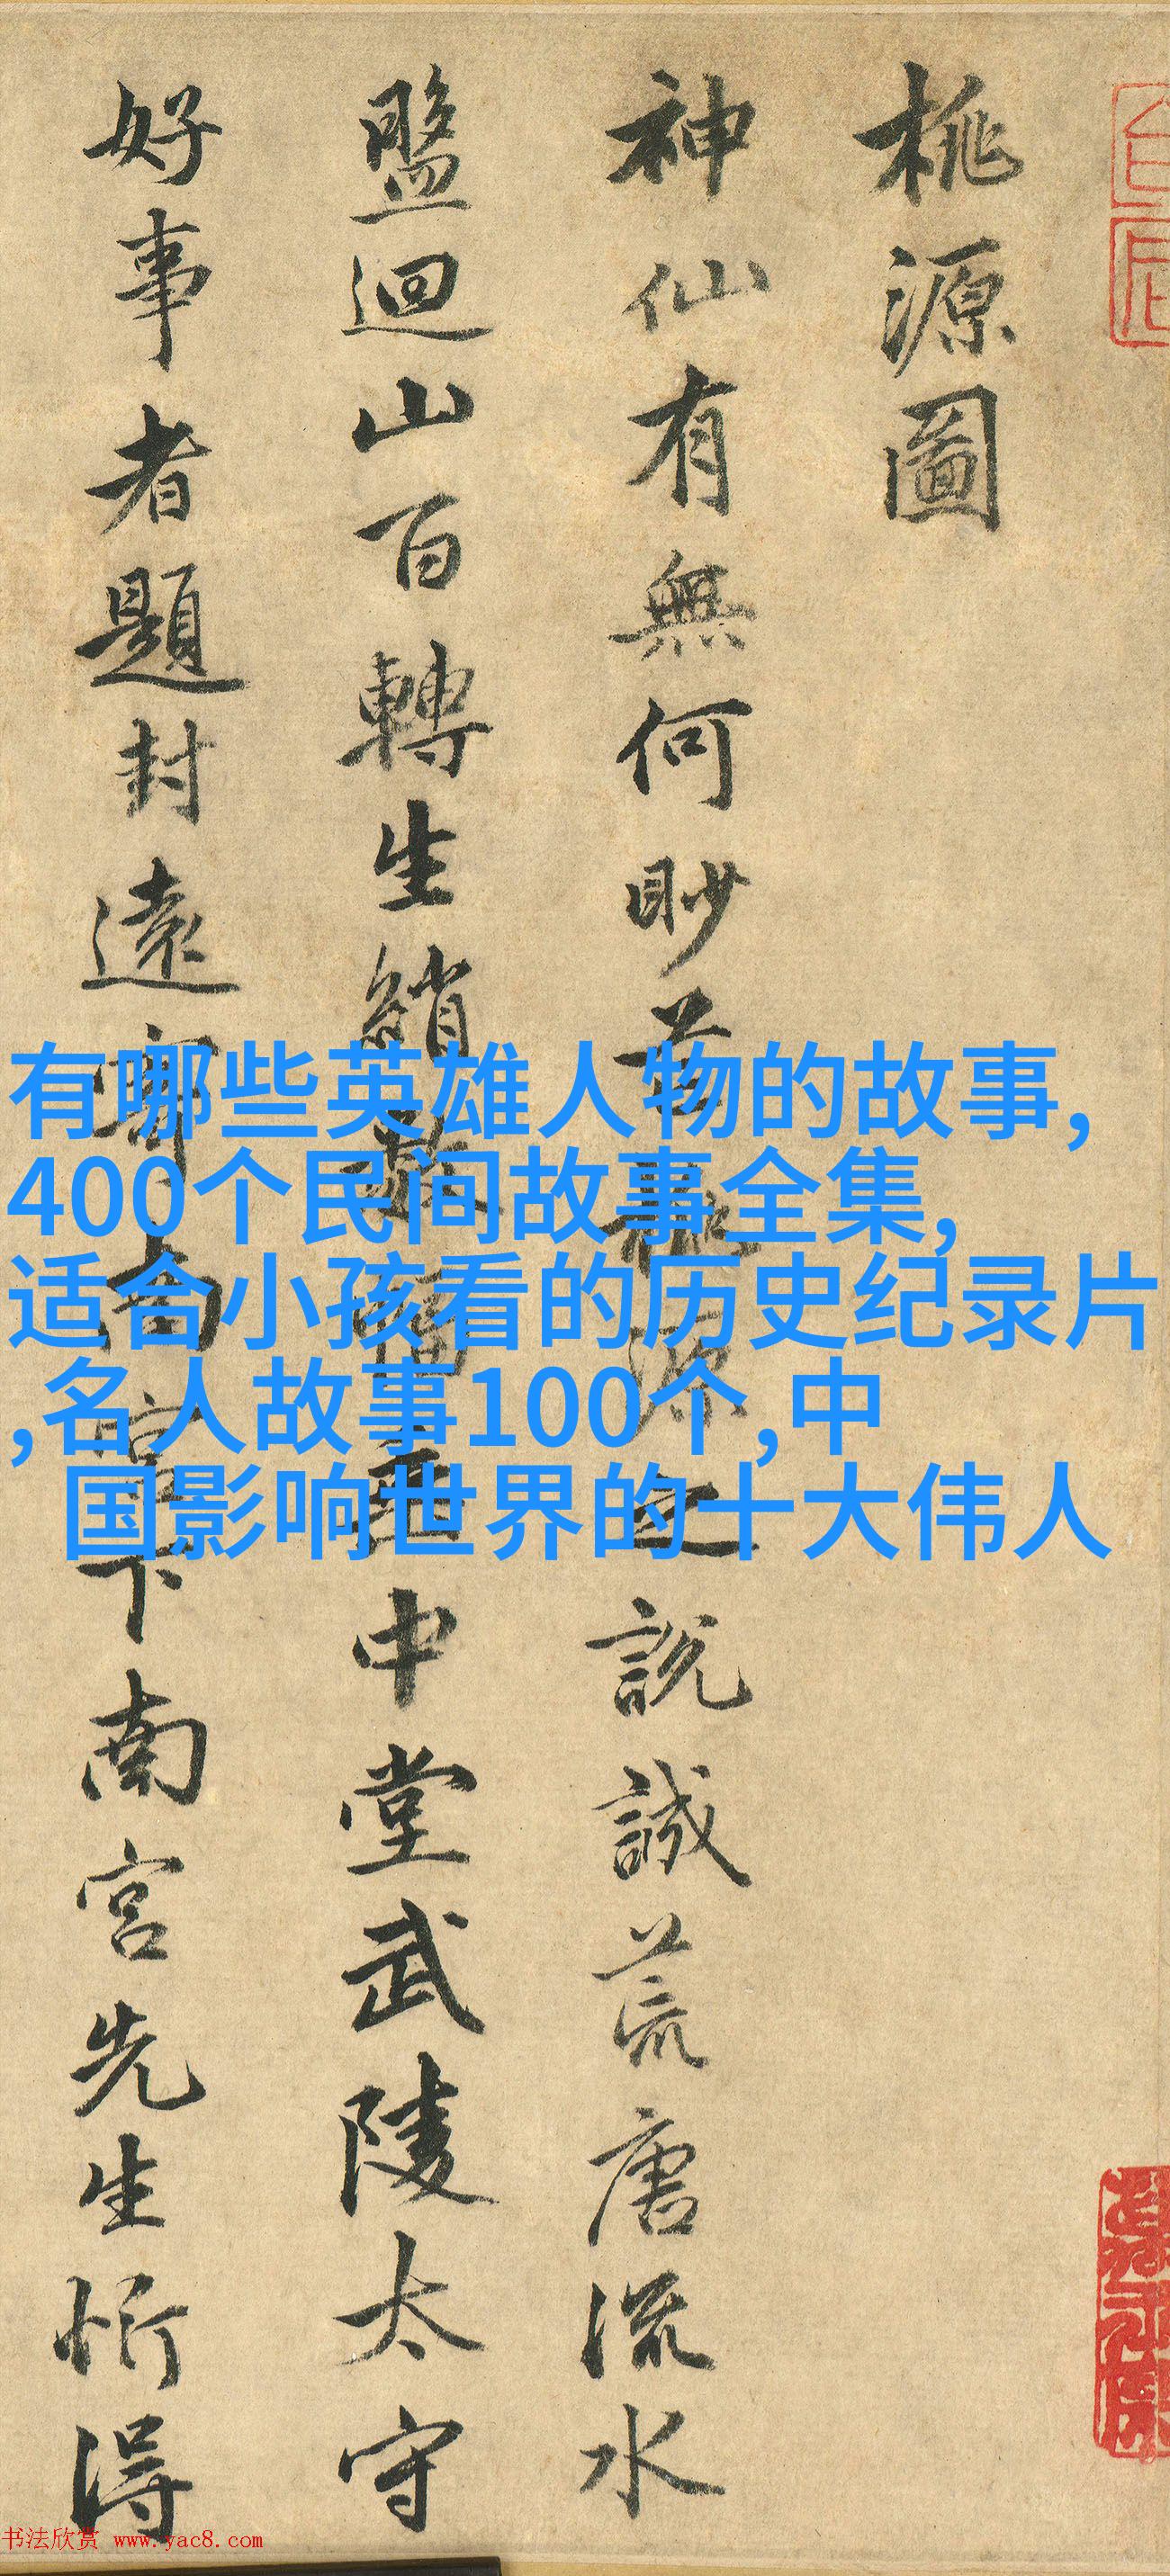 桃源圖
神仙有無何眇芒桃源之説誠荒唐流水
盤迴山百轉生綃數幅垂中堂武陵太守
好事者題封遠寄南宮下南宮先生忻得
有哪些英雄人物的故事,
400个民间故事全集,
适合小孩看的历史纪录片
,名人故事100个,中
国影响世界的十大伟人
书法欣赏 www.yac8.com